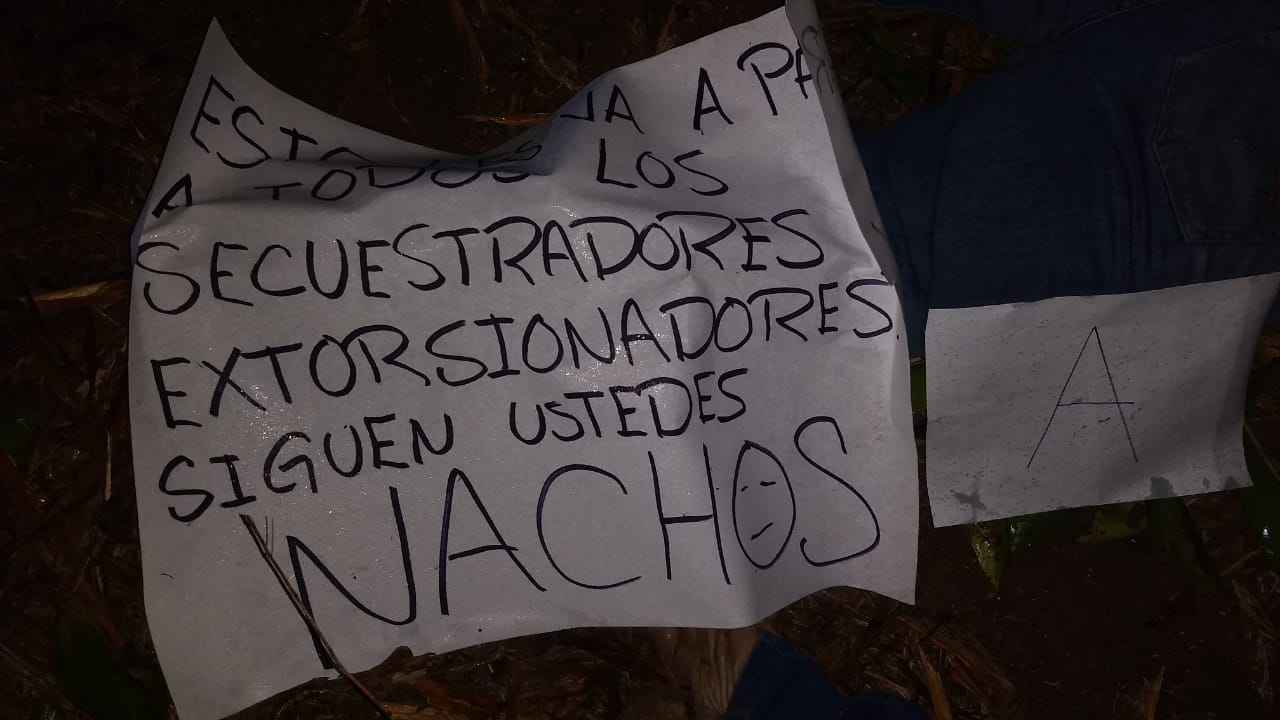 A PA
A TODOS LOS
SECUESTRADORES
EXTORSIONADORES
SIGUEN USTEDES
NACHOS
A